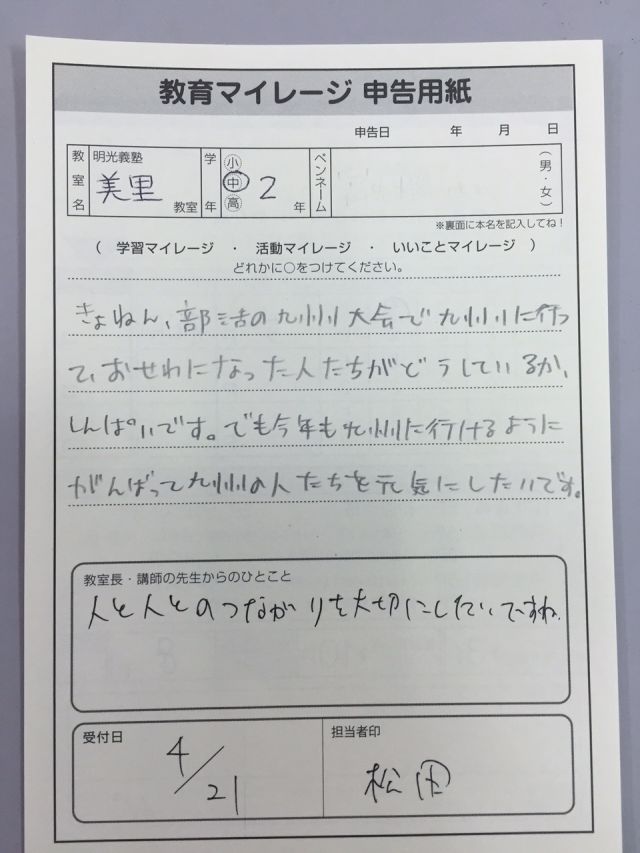 教育マイレージ 申告用紙
申告日 年 月 日
教室名 明光義塾 美里 教室 学年 小 中 高 2 年 ペンネーム (男・女)
※裏面に本名を記入してね!
( 学習マイレージ ・ 活動マイレージ ・ いいことマイレージ )
どれかに○をつけてください。
きょねん、部活の九州大会で九州に行っ
て、おせわになった人たちがどうしているか、
しんぱいです。でも今年も九州に行けるように
がんばって九州の人たちを元気にしたいです。
教室長・講師の先生からのひとこと
人と人とのつながりを大切にしたいですね。
受付日 担当者印
4/21 松田